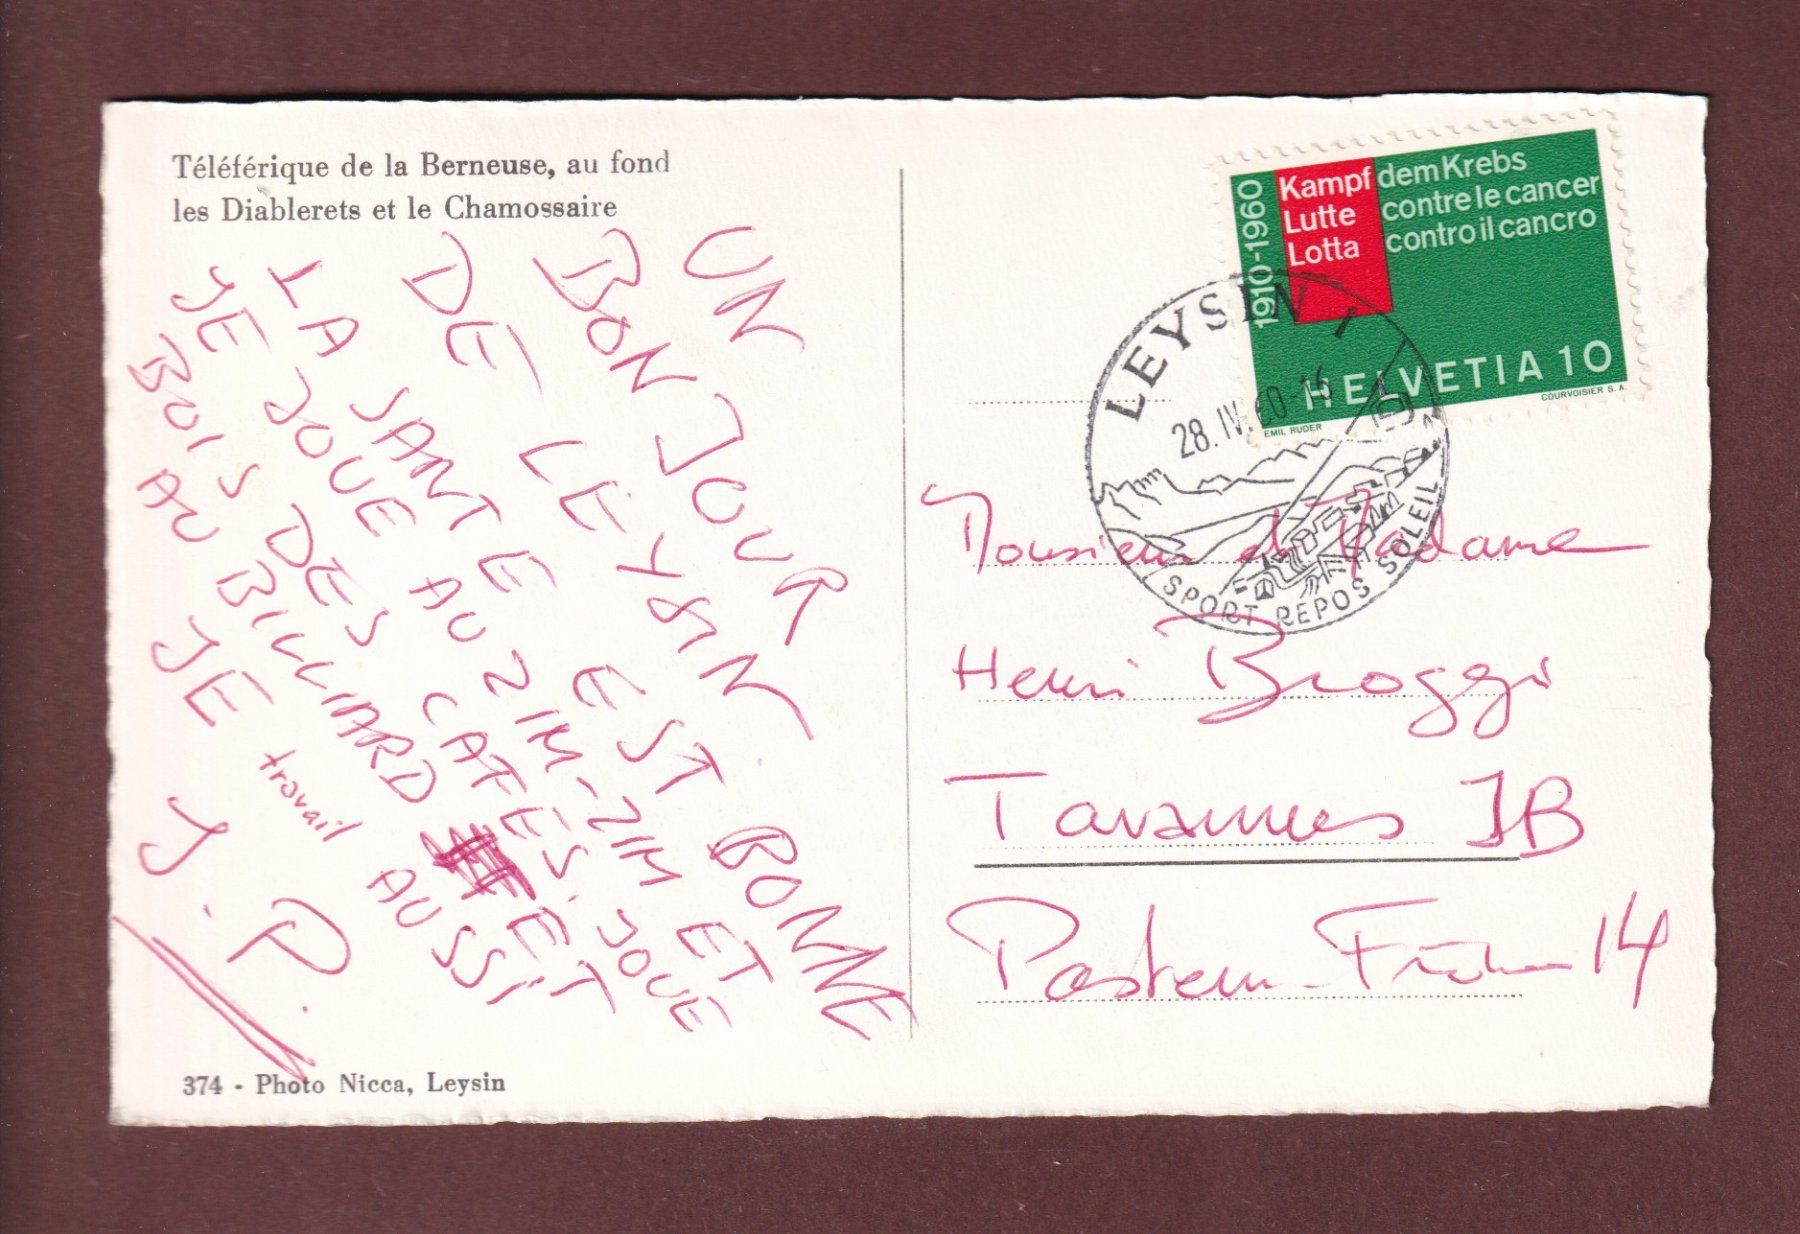 Téléférique de la Berneuse, au fond
les Diablerets et le Chamossaire
UN
BONJOUR
DE LEYSIN.
LA SANTE EST BONNE
JE JOUE AU ZIM-ZIM ET
BOIS DES CAFES. JOUE
AU BILLIARD ET
JE travail AUSSI
J. P.
374 - Photo Nicca, Leysin
1910-1960
Kampf dem Krebs
Lutte contre le cancer
Lotta contro il cancro
HELVETIA 10
EMIL RUDER
COURVOISIER S.A.
LEYSIN 1
28. IV. 60-16
SPORT REPOS SOLEIL
Monsieur et Madame
Henri Broggi
Tavannes JB
Pasteur-Frêne 14